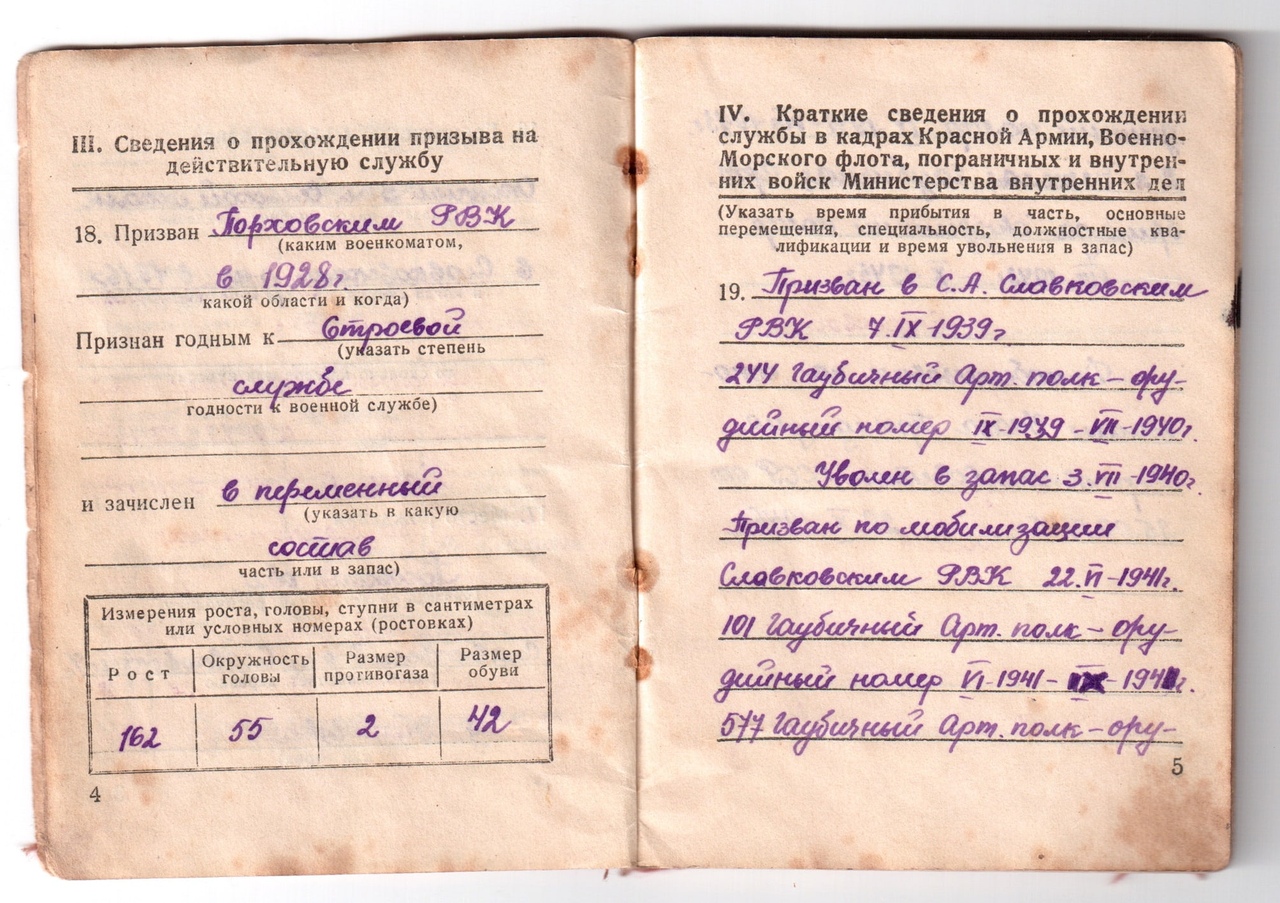 III. Сведения о прохождении призыва на
действительную службу
18. Призван Порховским РВК
(каким военкоматом,
в 1928г
какой области и когда)
Признан годным к Строевой
(указать степень
службе
годности к военной службе)
и зачислен в переменный
(указать в какую
состав
часть или в запас)
Измерения роста, головы, ступни в сантиметрах
или условных номерах (ростовках)
Рост
Окружность
головы
Размер
противогаза
Размер
обуви
162 55 2 42
4
IV. Краткие сведения о прохождении
службы в кадрах Красной Армии, Военно-
Морского флота, пограничных и внутрен-
них войск Министерства внутренних дел
(Указать время прибытия в часть, основные
перемещения, специальность, должностные ква-
лификации и время увольнения в запас)
19. Призван в С.А. Славковским
РВК 7 IX 1939г
244 Гаубичный Арт. полк – ору-
дийный номер IX-1939 – VII-1940г.
Уволен в запас 3.VII-1940г.
Призван по мобилизации
Славковским РВК 22.VI-1941г.
101 Гаубичный Арт. полк – ору-
дийный номер VI-1941 – IX-1941г.
577 Гаубичный Арт. полк – ору-
5